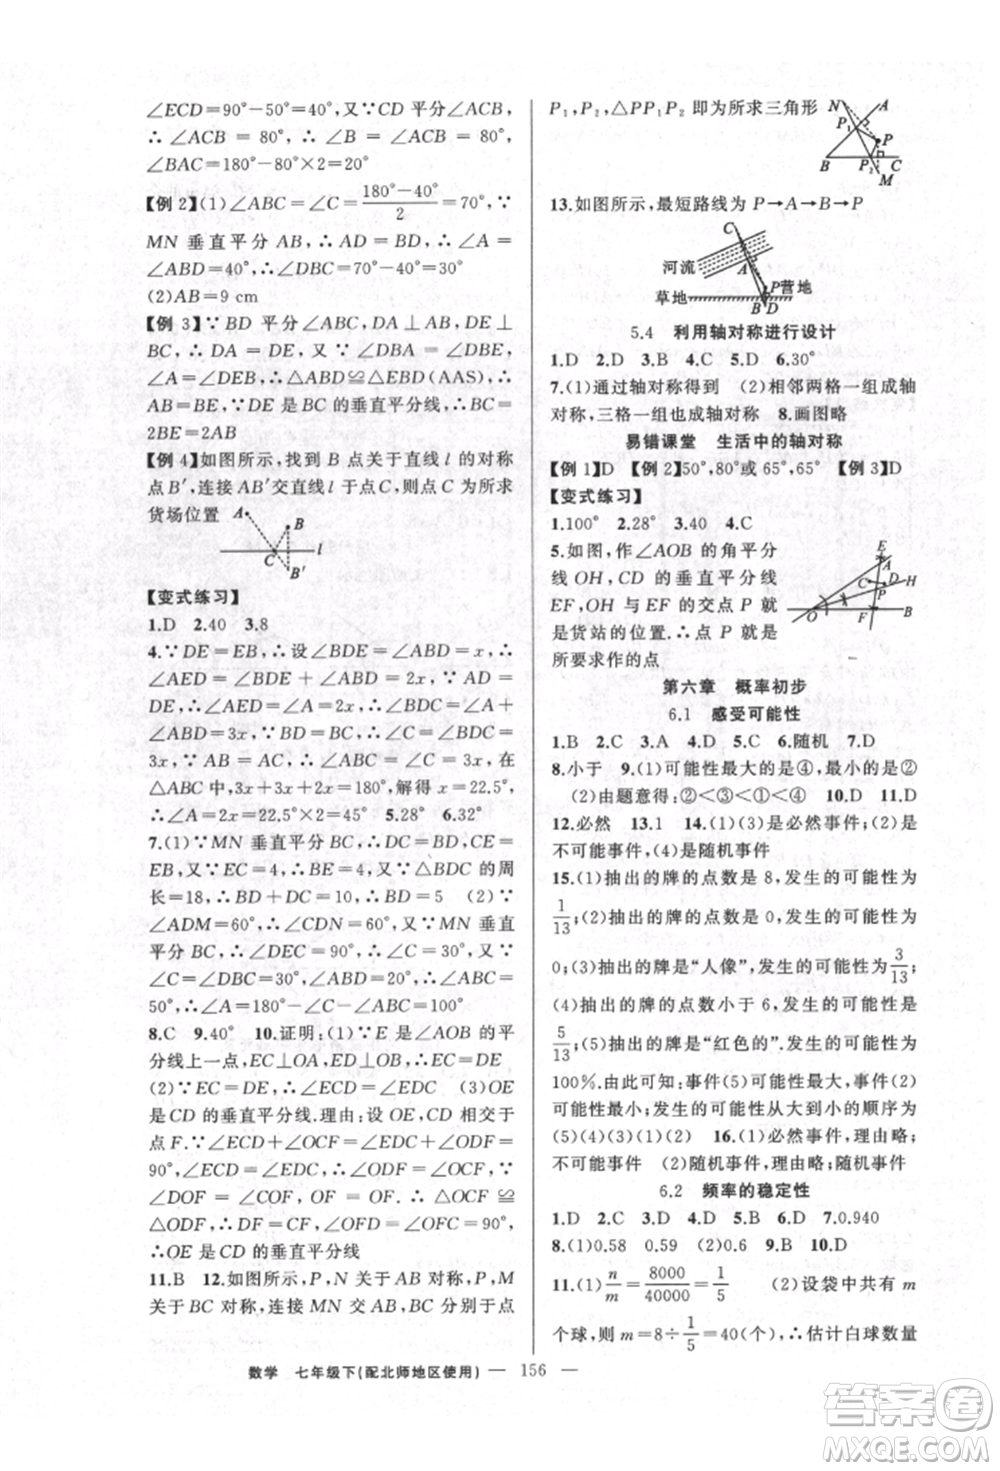 ∠ECD=90°－50°=40°,又∵CD 平分∠ACB,
∴ ∠ACB = 80°, ∴ ∠B = ∠ACB = 80°,
∠BAC=180°－80°×2=20°
【例 2】(1)∠ABC=∠C=(180°－40°)/2=70°,∵
MN 垂直平分 AB,∴AD=BD,∴∠A=
∠ABD=40°,∴∠DBC=70°－40°=30°
(2)AB=9 cm
【例 3】∵BD 平分∠ABC,DA⊥AB,DE⊥
BC,∴DA=DE,又∵∠DBA=∠DBE,
∠A=∠DEB,∴△ABD≌△EBD(AAS),∴
AB=BE,∵DE 是 BC 的垂直平分线,∴BC=
2BE=2AB
【例 4】如图所示,找出 B 点关于直线 l 的对称
点 B′,连接 AB′交直线 l 于点 C,点 C 为所求
货场位置
A B
C l
B′
【变式练习】
1.D 2.40 3.8
4.∵DE=EB,∴设∠BDE=∠ABD=x,∴
∠AED=∠BDE+∠ABD=2x,∵AD=
DE,∴∠AED=∠A=2x,∴∠BDC=∠A+
∠ABD=3x,∵BD=BC,∴∠C=∠BDC=
3x,∵AB=AC,∴∠ABC=∠C=3x,在△
ABC 中,3x+3x+2x=180°,解得 x=22.5°,
∴∠A=2x=22.5°×2=45° 5.28° 6.32°
7.(1)∵MN 垂直平分 BC,∴DC=BD,CE=
EB,又∵EC=4,∴BE=4,又∵△BDC 的周
长=18,∴BD+DC=10,∴BD=5 (2)∵
∠ADM=60°,∴∠CDN=60°,又∵MN 垂直
平分 BC,∴∠DEC=90°,∴∠C=30°,又∵
∠C=∠DBC=30°,∠ABD=20°,∴∠ABC=
50°,∴∠A=180°－∠C－∠ABC=100°
8.C 9.40° 10.证明:(1)∵E 是∠AOB 的平
分线上一点,EC⊥OA,ED⊥OB,∴EC=DE
(2)∵∠ECD=∠EDC=60° (3)OE
是 CD 的垂直平分线.理由:设 CD 和 OE 相交于
点 F.∵∠ECO=∠EDO=90°,∠ECD=
∠EDC,∴∠OCF=∠ODF,又∵∠OFC=
90°,∴∠DFO=90°,∴△COF≌
△ODF,∴DF=CF,∠OFD=∠CFO=90°,
∴OE 是 CD 的垂直平分线
11.B 12.如图所示,P,N 关于 AB 对称,P,M
关于 BC 对称,连接 MN 交 AB,BC 分别于点
P₁,P₂,△PP₁P₂ 即为所求三角形
N A
P₁ P
B P₂ C
M
13.如图所示,最短路线为 P→A→B→P
C
河流 A P营地
草地 B D
5.4 利用轴对称进行设计
1.D 2.D 3.B 4.C 5.D 6.30°
7.(1)通过轴对称得到 (2)相邻两格一组成轴
对称,三格一组也成轴对称 8.画图略
易错课堂 生活中的轴对称
【例 1】D 【例 2】50°,80°或 65°,65° 【例 3】D
【变式练习】
1.100° 2.28° 3.40 4.C
5.如图,作∠AOB 的角平分
线 OH,CD 的垂直平分线
EF,OH 与 EF 的交点 P 就
是货站的位置.∴点 P 就是
所要求作的点
E A
C D H
P
O F B
第六章 概率初步
6.1 感受可能性
1.B 2.C 3.A 4.D 5.D 6.随机 7.D
8.小于 9.(1)可能性最大的是④,最小的是②
(2)由题意得:②<③<①<④ 10.D 11.D
12.必然 13.1 14.(1)(3)是必然事件;(2)是
不可能事件;(4)是随机事件
15.(1)抽出的牌的点数是 8,发生的可能性为
1/13;(2)抽出的牌的点数是 0,发生的可能性为
0;(3)抽出的牌是“人像”,发生的可能性为3/13;
(4)抽出的牌的点数小于 6,发生的可能性为
5/13;(5)抽出的牌是“红色的”,发生的可能性为
100%.由此可知:事件(5)可能性最大,事件(2)
可能性最小,发生的可能性从大到小的顺序为
(5)(4)(3)(1)(2) 16.(1)必然事件,理由略;
不可能事件 (2)随机事件,理由略;随机事件
6.2 频率的稳定性
1.D 2.C 3.C 4.D 5.B 6.D 7.0.940
8.(1)0.58 0.59 (2)0.6 9.B 10.D
11.(1)n/m=8000/40000=1/5 (2)设袋中共有 m
个球,则 m=8÷1/5=40(个),∴估计白球数量
数学 七年级下(配北师地区使用) — 156 —
答案圈
MXQE.COM